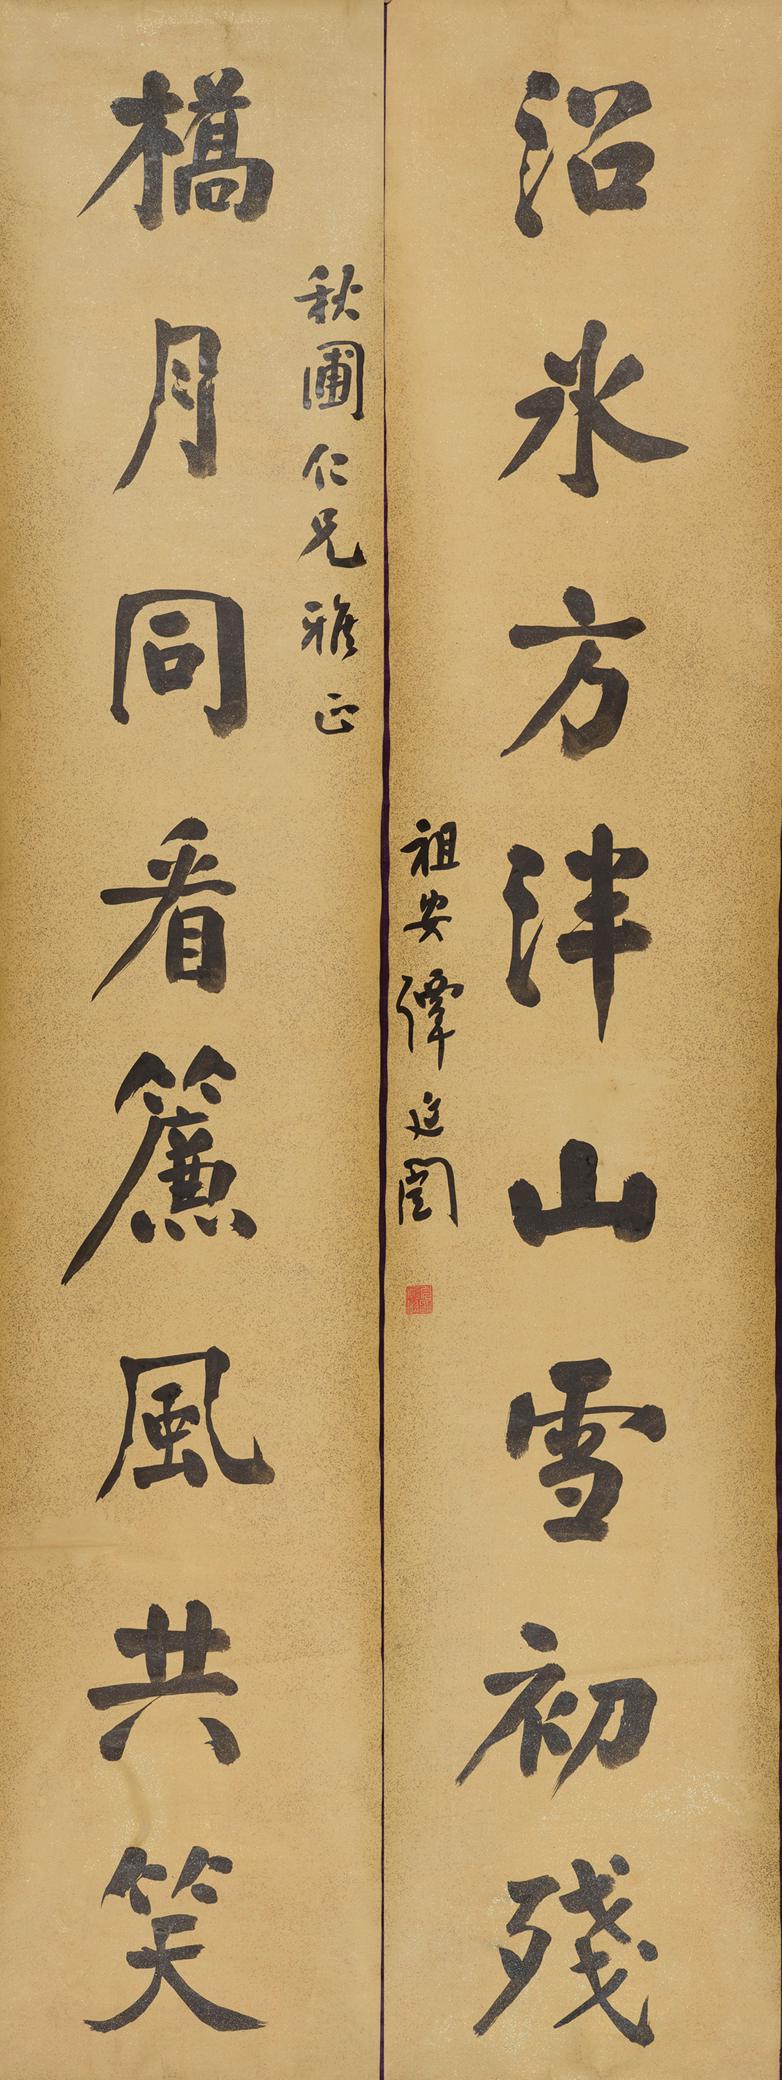 沼氷方泮山雪初殘
橋月同看簾風共笑
秋圃仁兄雅正
祖安譚延闿